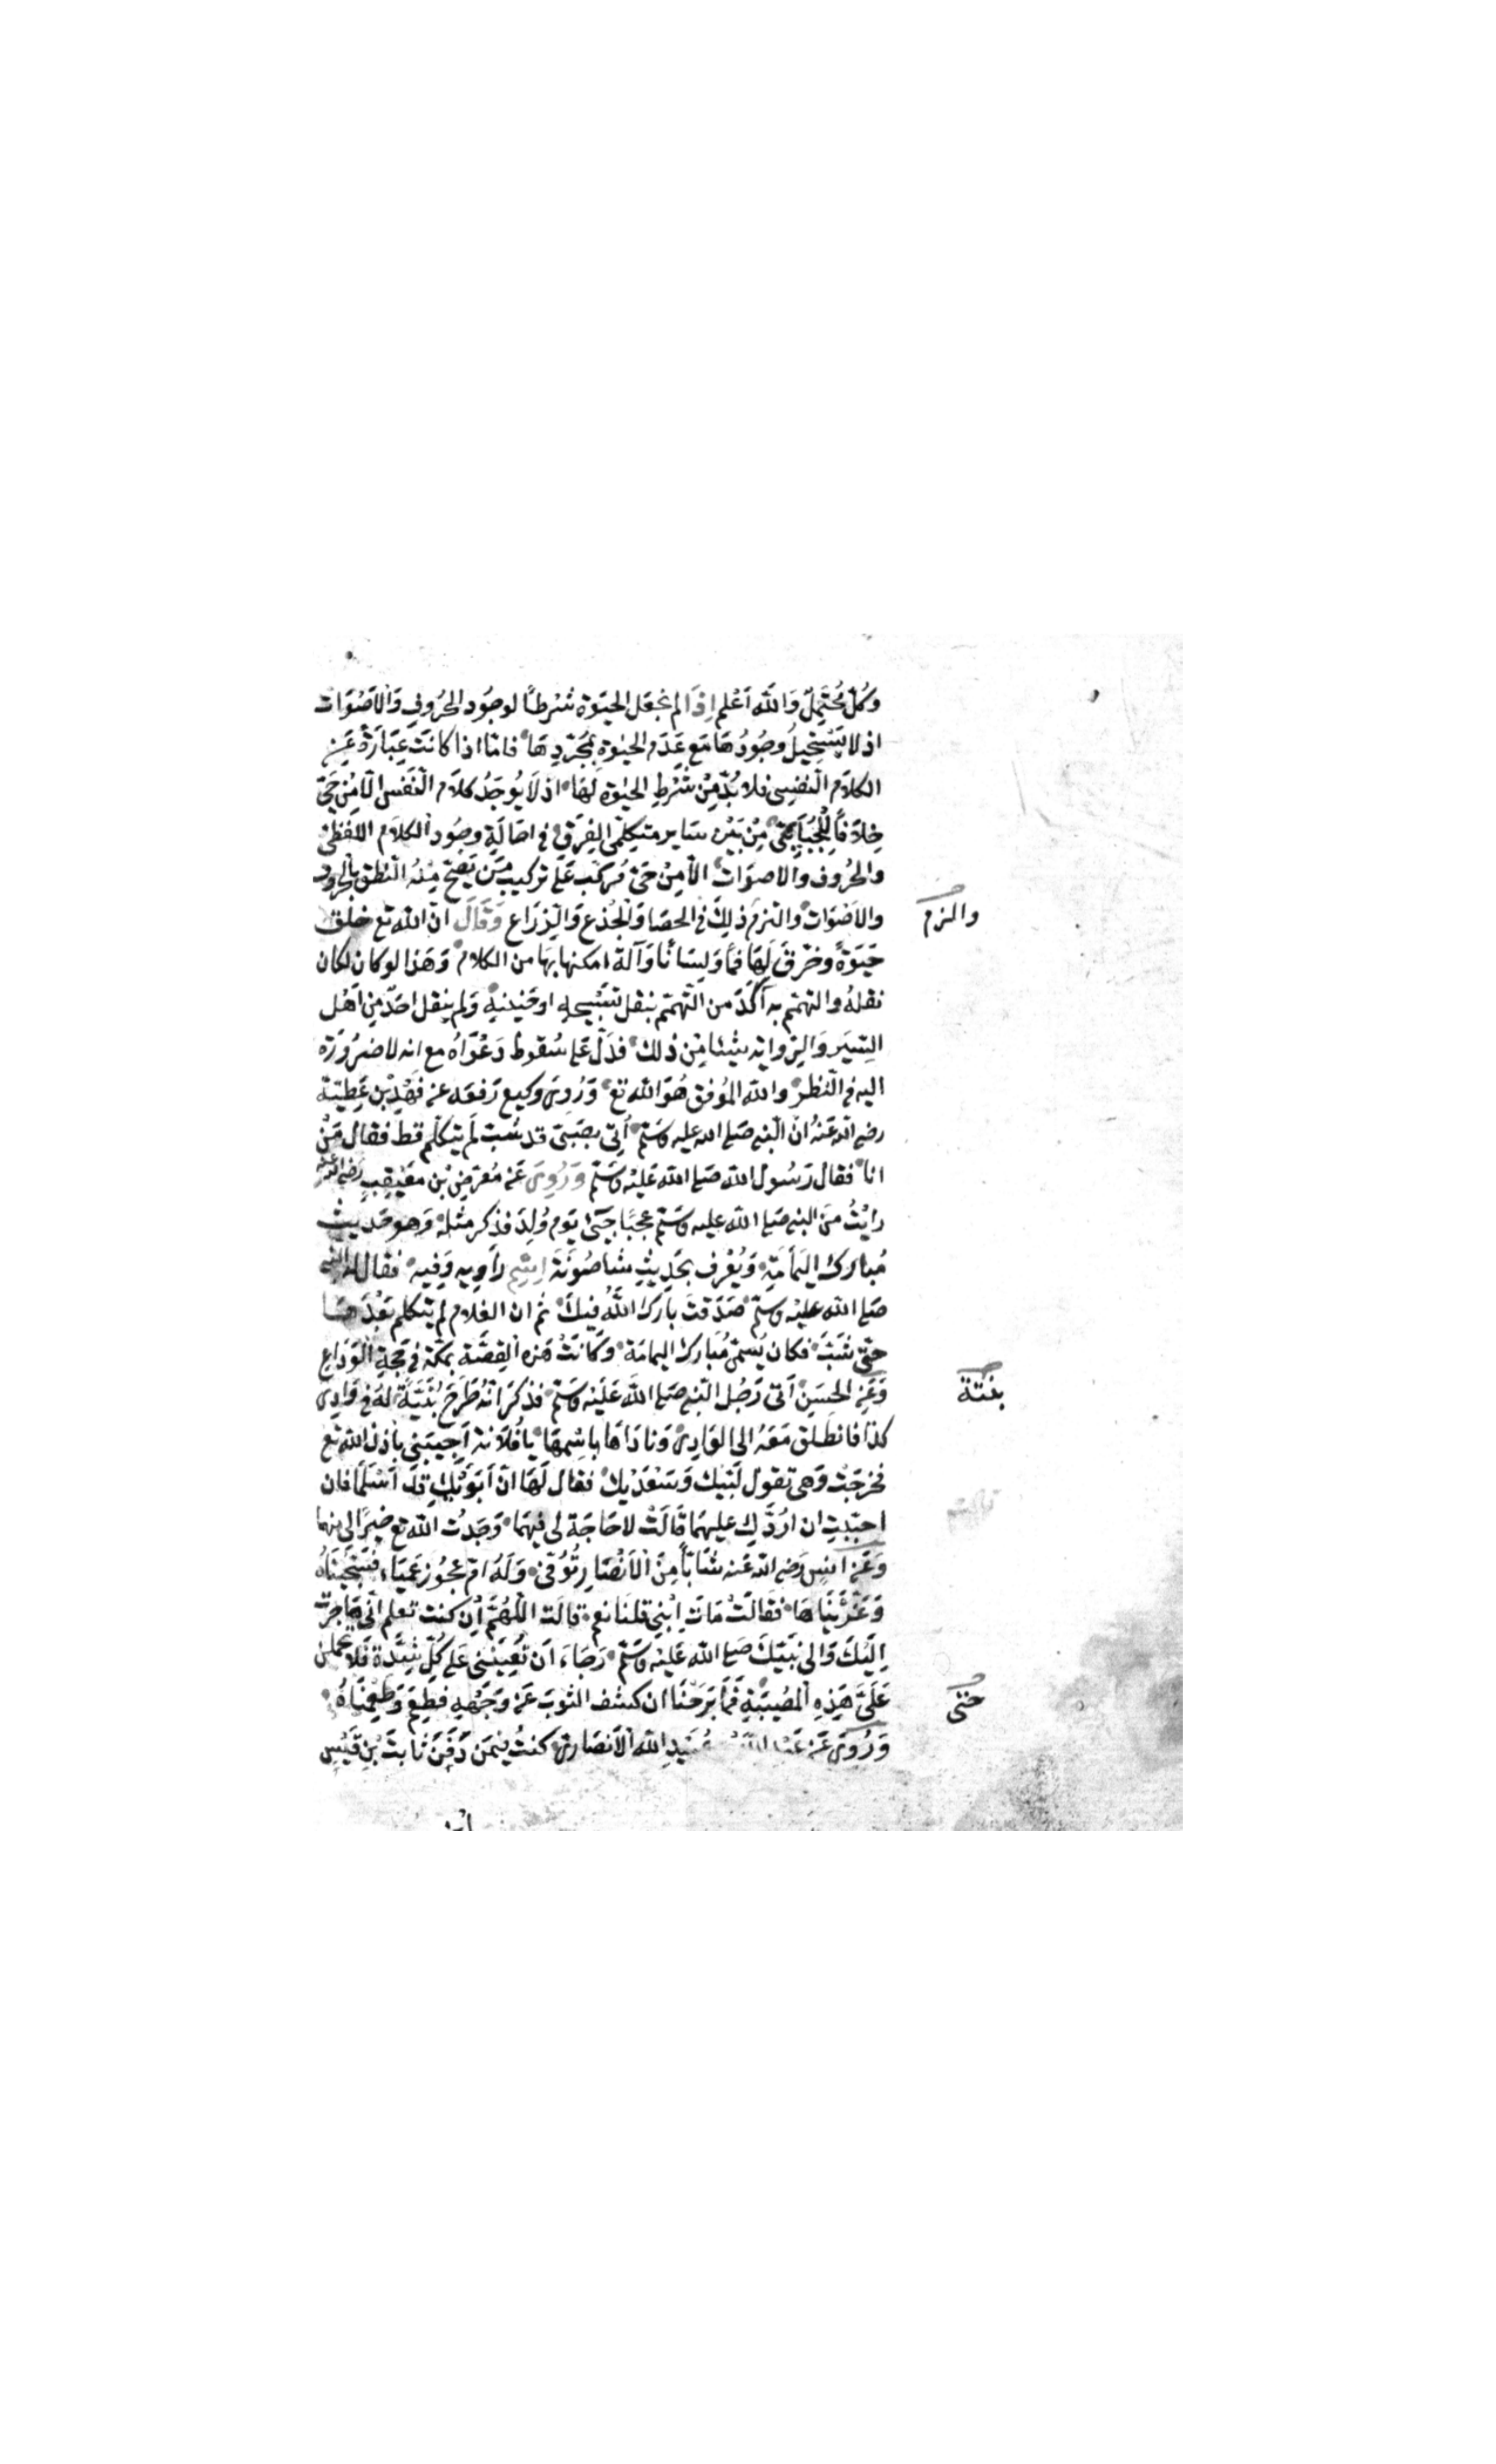 وَكُلّ مُحْتَمِلٌ وَاللّٰه اَعْلم اِذَا لم نجعَل الحيٰوة شرْطاً لوجُود الحُروفِ وَالاَصْوَات
اذ لا يَسْتحِيلُ وجُودُ هَا مَع عَدَم الحيٰوةِ بمُجَرّدِهَا فامّا اذا كانَتْ عِبَارَةً عَن
الكلاَم النفسِى فلا بُدّ مِنْ شَرْطِ الحيٰوةِ لَهَا اذ لاَ يُوجَدُ كلاَم النّفسِ الّا مِنْ حَىّ
خِلاَفاً لِلْجُبَّائى مِنْ بَيْن سَاير متكلّمى الفِرَقِ فى احَالَةِ وجُود الكلاَم اللفْظىّ
والحُروف والاصوَات الّا مِنْ حَىّ مُركّب عَلَى تركيب مَن يَصِحّ مِنْهُ النّطق بالحروف
والاَصْوَات والتزم ذلِكَ فى الحصَا وَالجُذع وَالذِرَاع وَقَالَ انّ اللّٰه تع خلق
حَيَوةً وخرَقَ لَهَا فمًا وَلِسَانًا وَآلةً امكنها بهَا من الكلام وَهذا لو كان لكان
نقلهُ والتهمّم به آكَدَ من التّهمّم بنقل تَسْبيحه اوحَنينِهِ وَلم ينقل احَدٌ مِن اَهْل
السِيَر وَالرّواية شيئا مِن ذلك فدَلّ عَلى سُقوط دَعْوَاهُ مع انه لا ضرُورَة
اليه فى النّظر وَاللّٰه المُوفق هُوَ اللّٰه تع وَرُوِىَ وكيع رَفعَه عن فهْدِ بْن عَطِيّة
رضى اللّٰه عَنْهُ انّ النّبى صَلى اللّٰه عليه وَسَلّم اُتِى بصَبىّ قد شَبّ لَم يتكلّم قط فقال مَنْ
انا فقال رَسُول اللّٰه صَلى اللّٰه عَليْه وَسَلّم وَرُوِىَ عَن مُعَرّضِ بْنِ مُعَيْقِيبٍ رَضى اللّٰه عنه
رَايْتُ منَ النبى صَلى اللّٰه عليه وَسَلّم عجبًا جِىَٔ يَوم وُلِدَ فذكر مثله وَهو حَديث
مُبارك اليَمَامَةِ وَيُعْرف بحَدِيثِ شاصُونَة اِسْمِ رَاوِيه وَفيه فقال له النبى
صَلى اللّٰه عليْه وَسَلّم صَدَقتَ بَارَكَ اللّٰهُ فيكَ ثم ان الغلام لم يتكلم بَعْدَ هَا
حَتّى شَبّ فكان يُسمّى مُبَارك اليمامَة وَكَانَتْ هَذِه القِصَّة بمكّة فى حَجةِ الوَدَاع
وَعَن الحسَنِ اَتى رَجُل النّبى صَلى اللّٰه عَليْه وَسَلّم فذكَرَ انّهُ طَرَحَ بُنَيّةً لهُ فى وَادِى
كذا فانطلق مَعَهُ الى الوَادِى وَنادَاهَا باسْمِهَا يا فُلاَنة اَجِيبينى باذن اللّٰه تع
فخرَجَتْ وَهى تقول لَبّيْك وَسَعْدَيْك فقال لَهَا انّ اَبَوَيْكِ قدْ اَسْلَمَا فان
احبَبْتِ ان ارُدَّكِ عليهمَا قَالَتْ لاحَاجَة لى فيْهمَا وَجَدتُ اللّٰه تع خيرًا لى منهما
وَعَن انسٍ رَضى اللّٰه عَنه شَابّاً مِنَ الاَنْصَار تُوُفّى وَلَهُ امّ عجُوز عَميَاء فسَجّينَاهُ
وَعَزّيْنَاهَا فَقالَتْ مَاتَ اِبْنى قلنَا نعم قالَت اللّهُمّ اِن كنت تعلم انّى هَاجَرْت
اِلَيْكَ وَالى نبيّكَ صَلى اللّٰه عَليْه وَسَلّم رَجَاءَ اَن تُعِينَنى عَلى كُلّ شِدّة فَلا تحملن
عَلَىّ هَذِهِ المُصِيبَةِ فَمَا بَرحْنَا ان كشف الثوبَ عَن وَجْهِهِ فطَعِمَ وَطَعِمْنَا
وَرُوِىَ عَن عَبْد اللّٰه عُبَيْدِ اللّٰه الاَنصَارِى كنتُ فيمَن دَفَنَ ثَابتَ بْنِ قَيْسٍ
والزم
بنتة
حتى